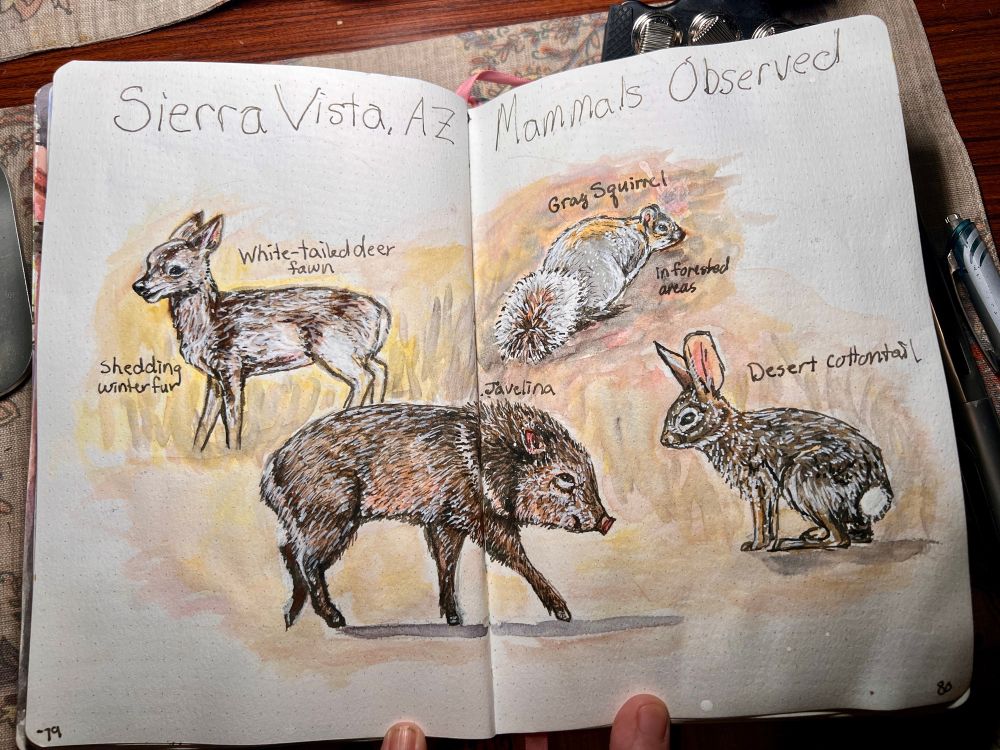 Sierra Vista, AZ Mammals Observed
White-tailed deer
fawn
Shedding
winter fur
Gray Squirrel
in forested
areas
Javelina
Desert Cottontail
79
80